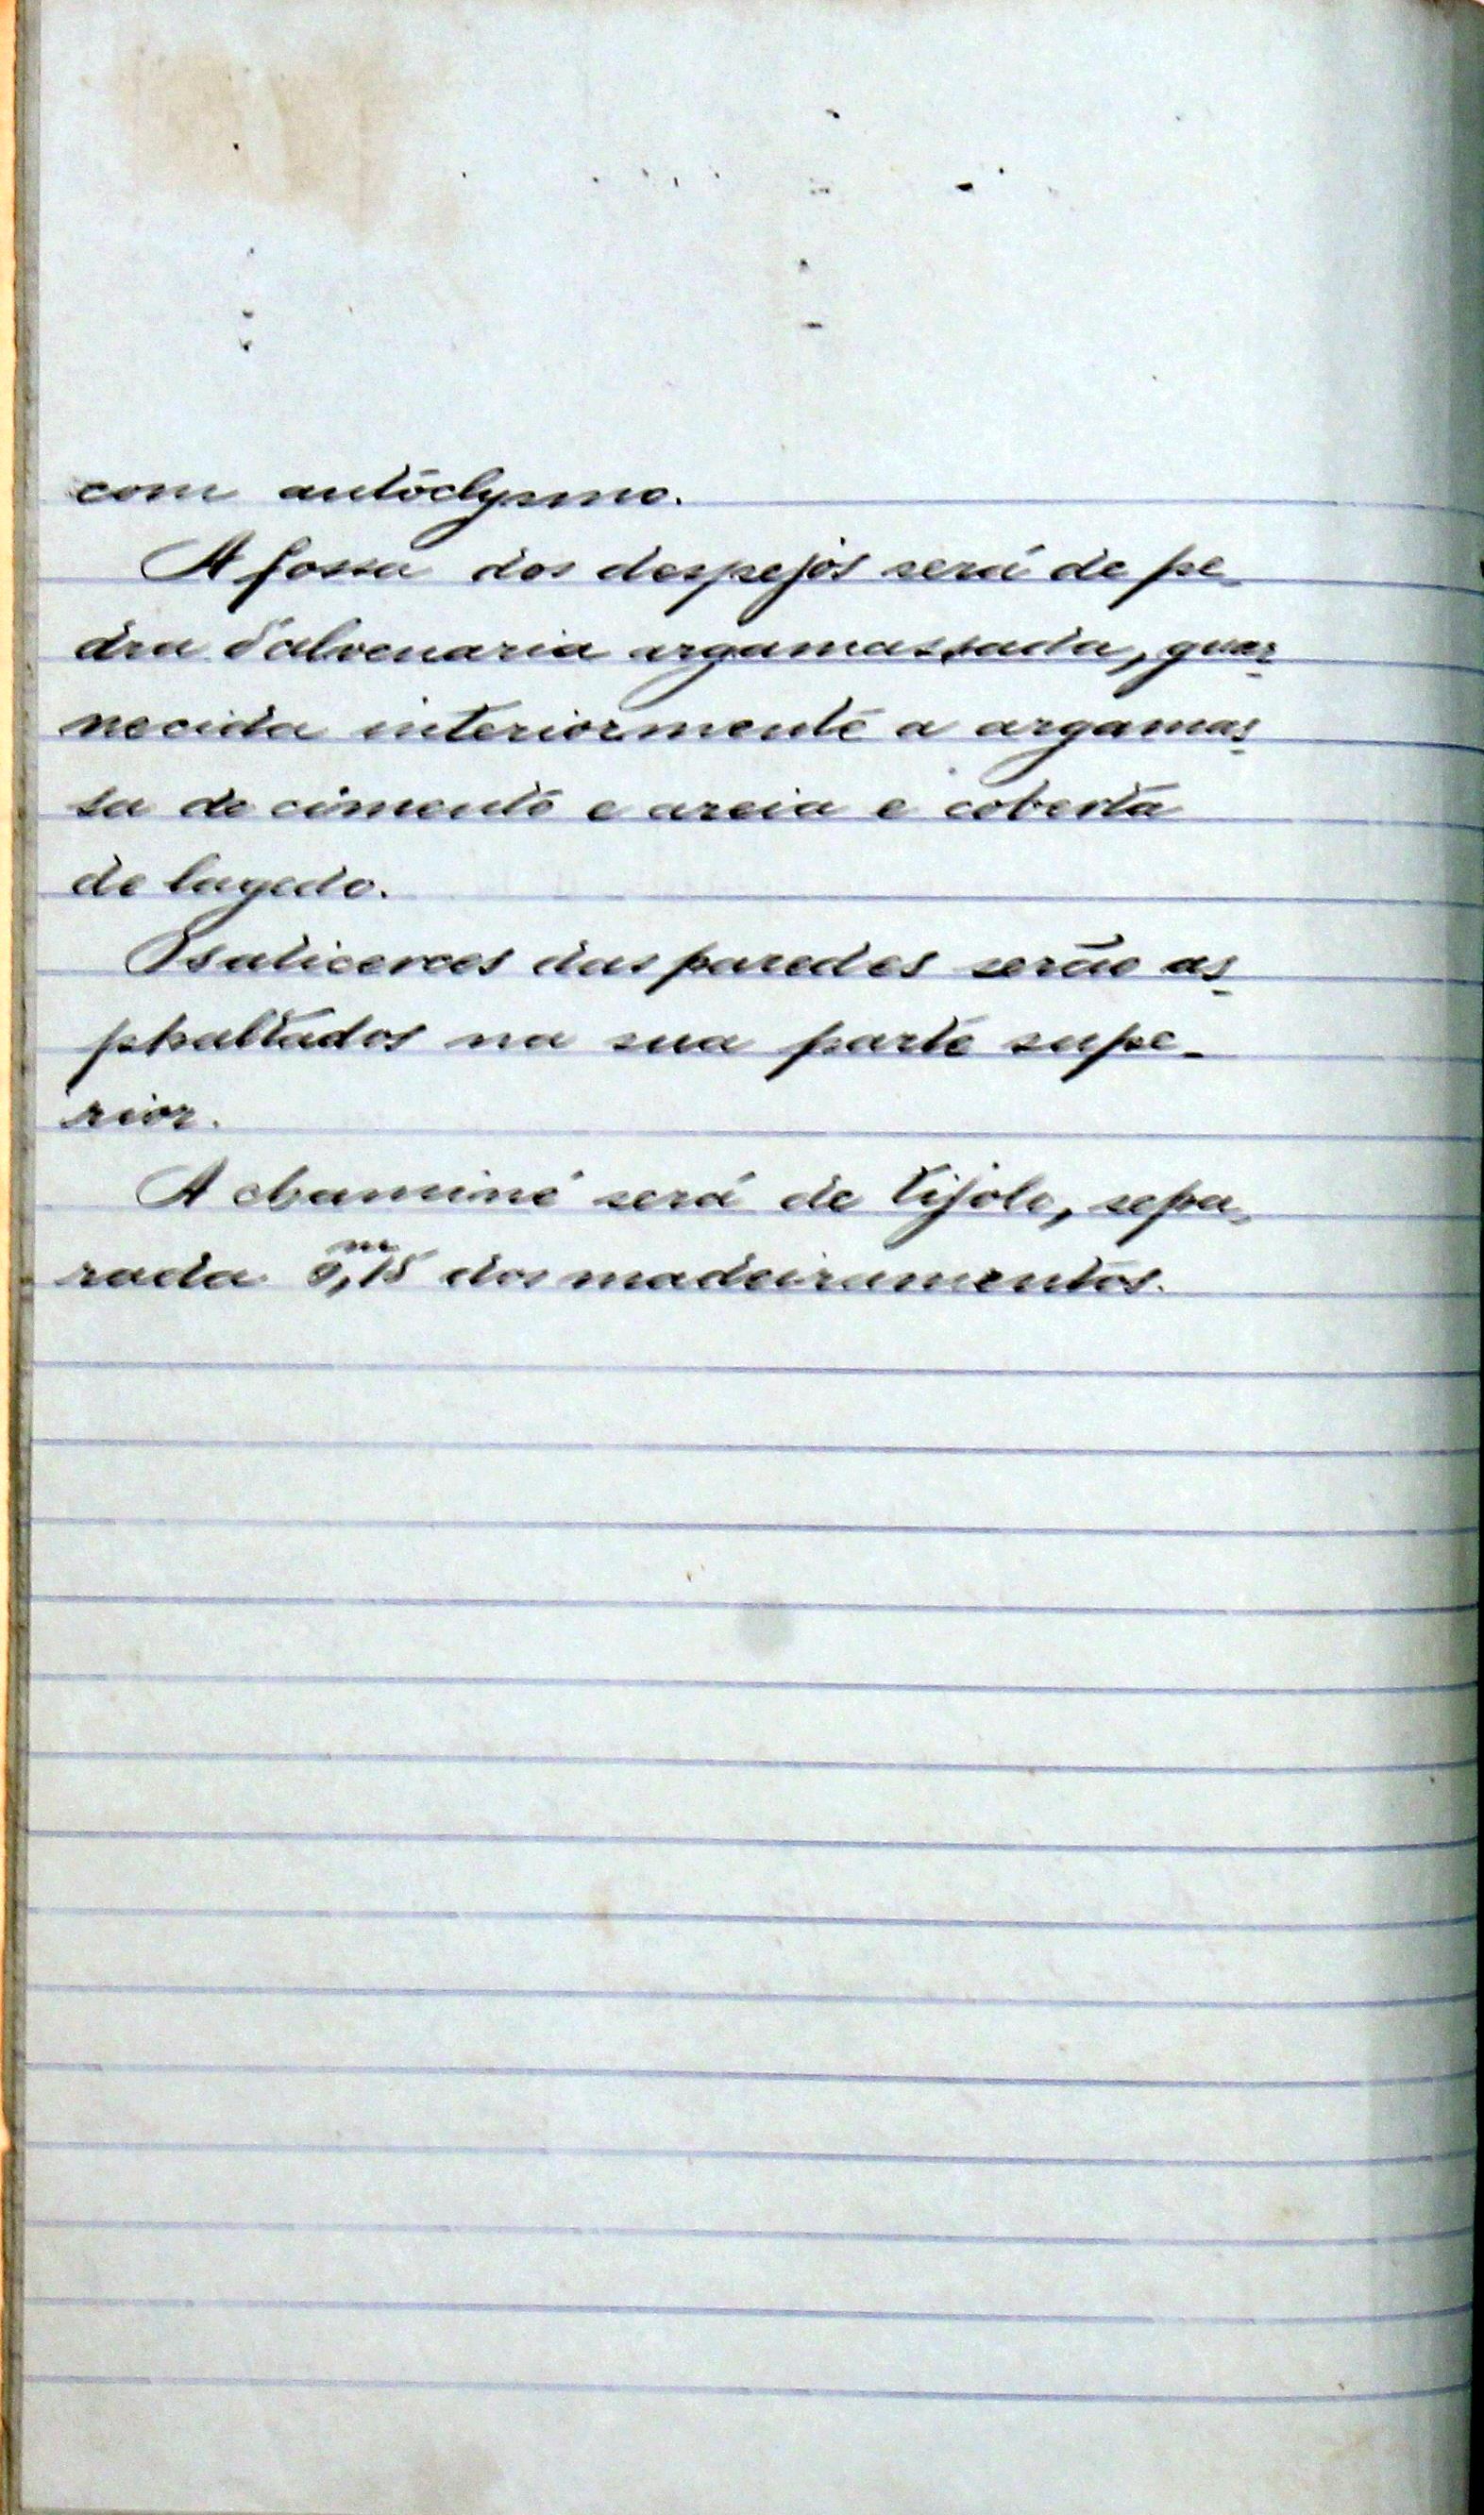 com autóclysmo.
A fossa dos despejos será de pe-
dra d'alvenaria argamassada, guar-
necida interiormente a argamas-
sa de cimento e areia e coberta
de lagedo.
Os alicerces das paredes serão as-
phaltados na sua parte supe-
rior.
A chaminé será de tijolo, sepa-
rada 0,m15 dos madeiramentos.